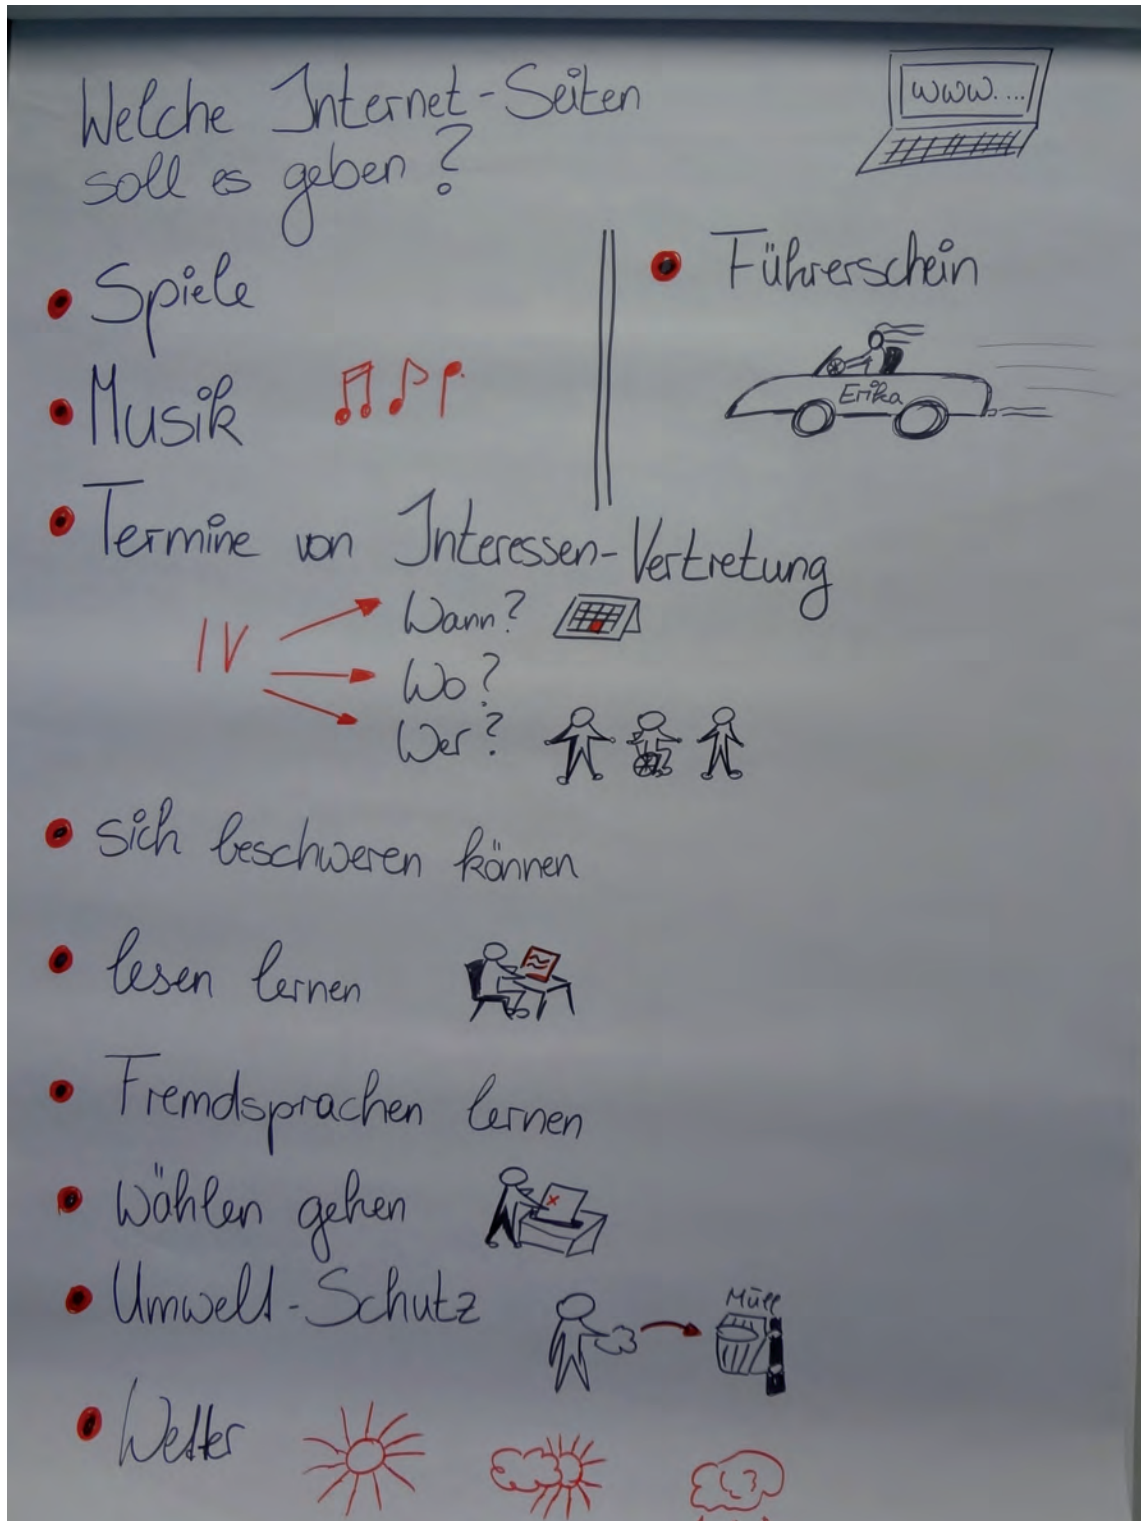 Welche Internet-Seiten
soll es geben?
www....
• Spiele
• Musik
• Führerschein
Erika
• Termine von Interessen-Vertretung
IV
Wann?
Wo?
Wer?
• sich beschweren können
• lesen lernen
• Fremdsprachen lernen
• wählen gehen
• Umwelt-Schutz
Müll
• Wetter